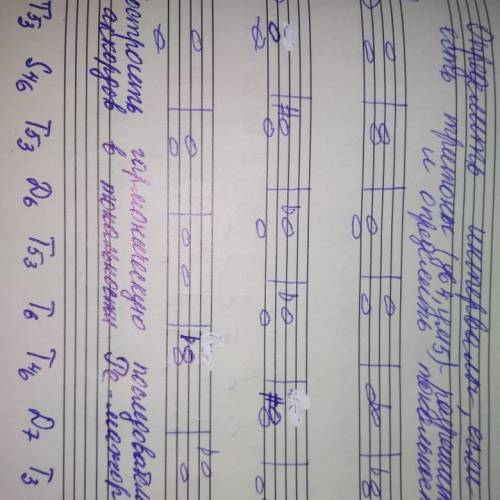 Определить интервалы, если
есть тритоны (ув4, ум5) - разрешить
и определить тональность
Построить гармоническую последователь
аккордов в тональности Ре-мажор
T53 S46 T53 D6 T53 T6 T46 D7 T3